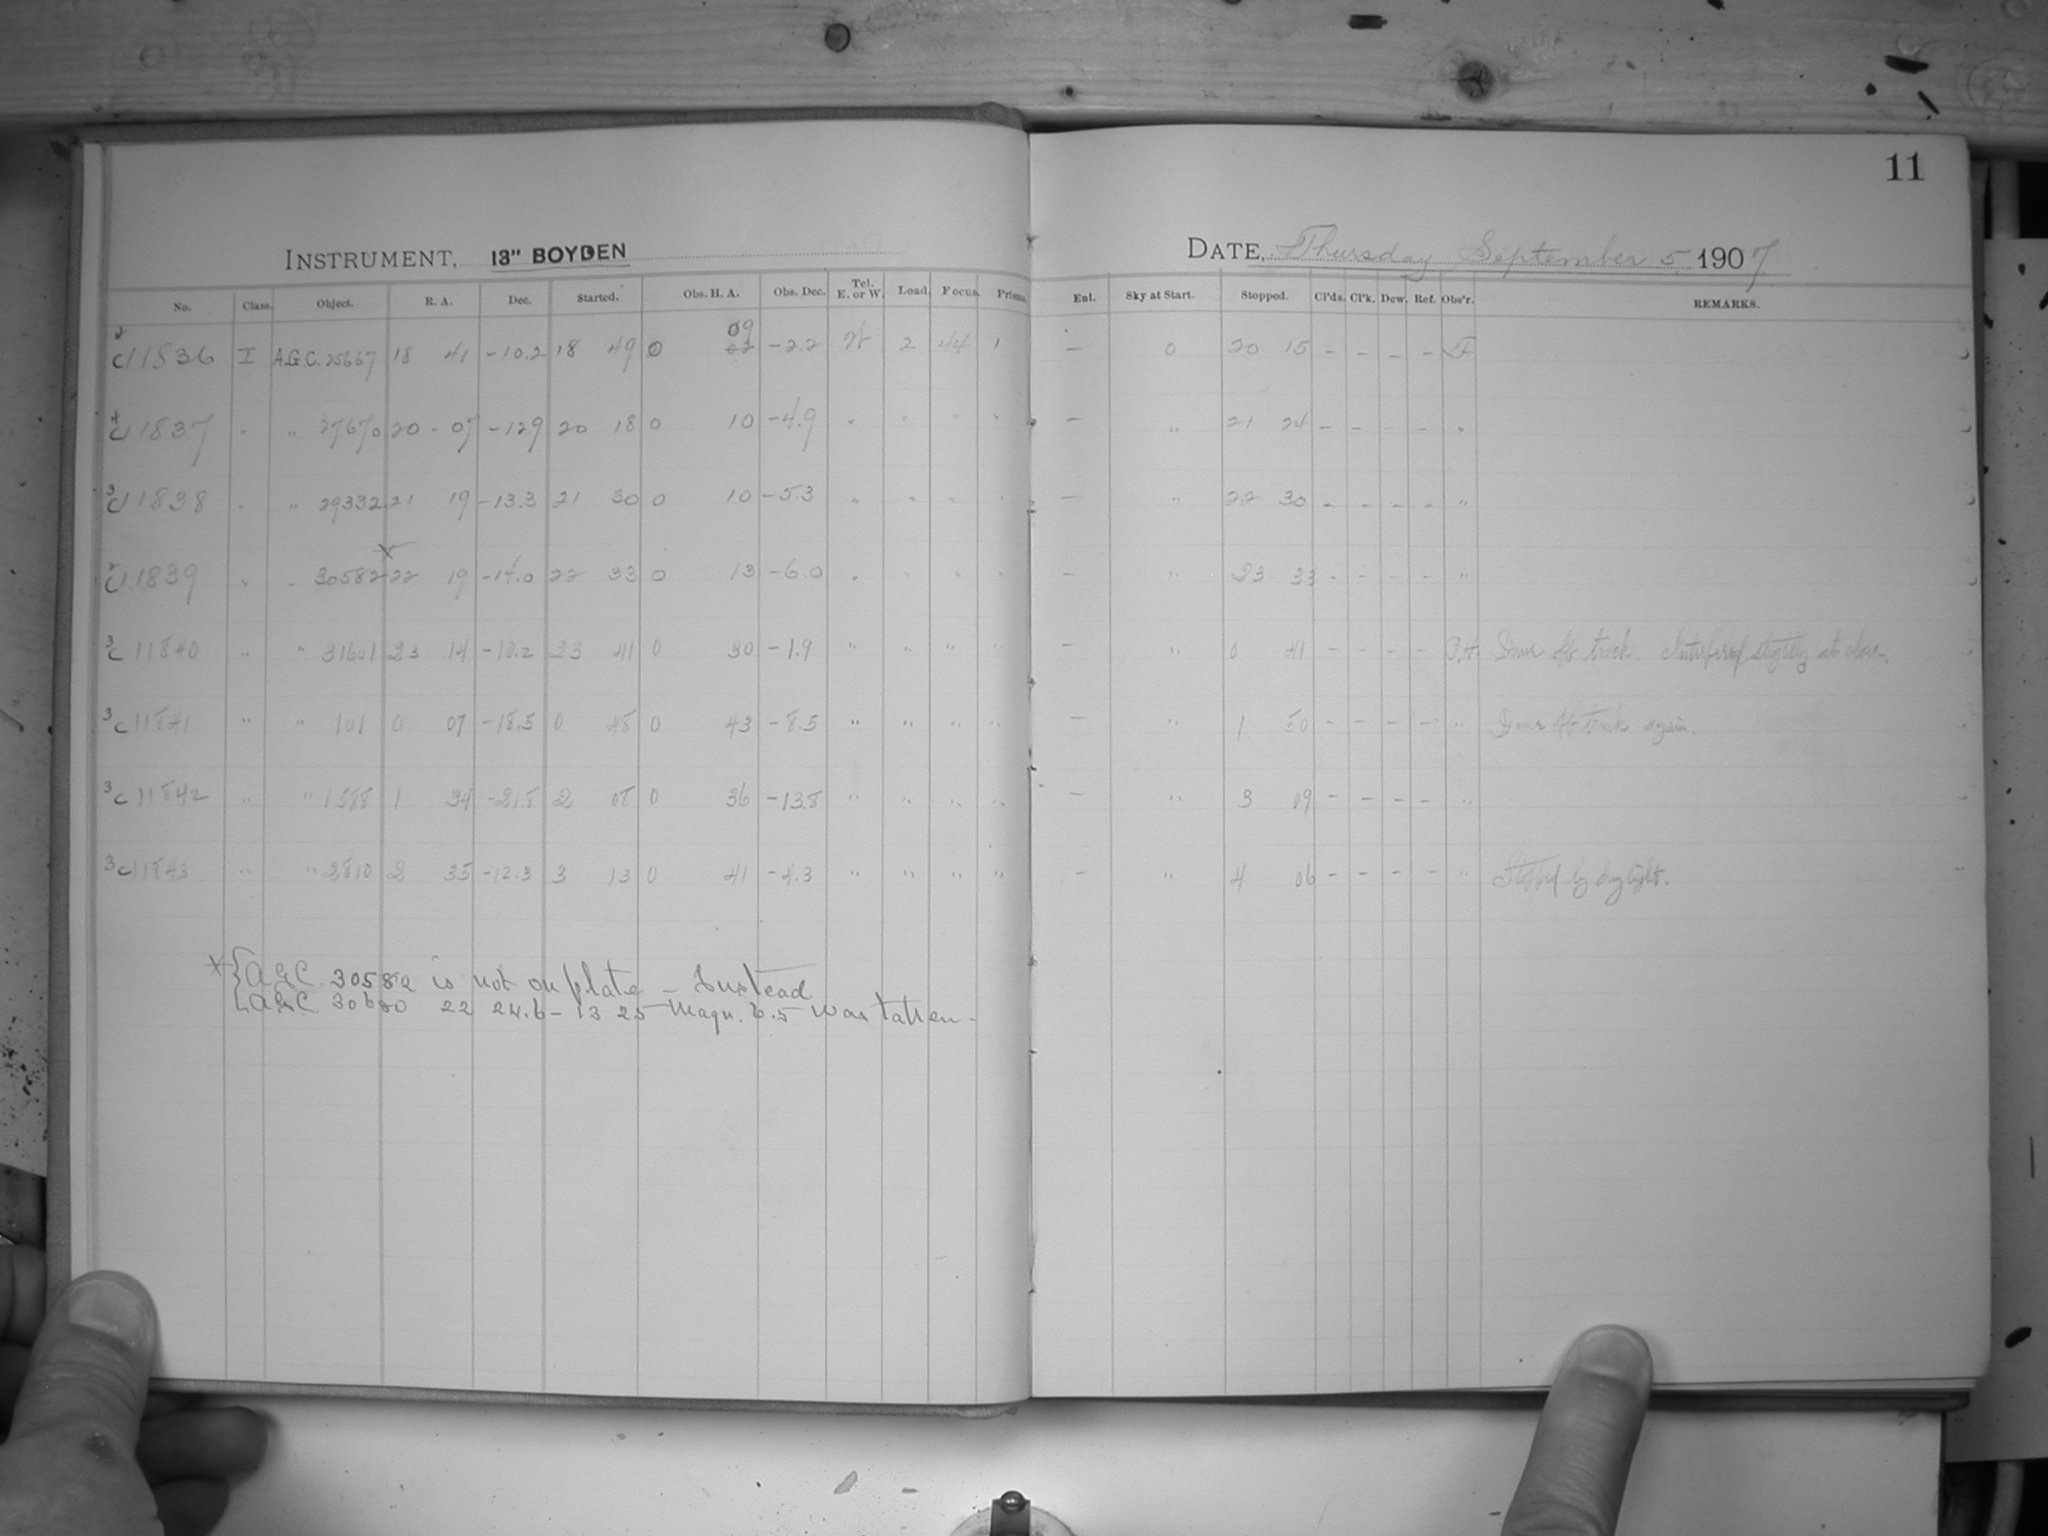 11
INSTRUMENT, 13" BOYDEN
DATE, Thursday September 5, 1907
No. Class. Object. R. A. Dec. Started. Obs. H. A. Obs. Dec. Tel. E. or W. Load. Focus. Prisms. Enl. Sky at Start. Stopped. Cl'ds. Cl'k. Dew. Ref. Obs'r. REMARKS.
09
C11836 I A.G.C. 25667 18 41 -10.2 18 49 0 -2.2 W 2 44 1 - 0 20 15 - - - - F
C11837 " " 27670 20 07 -12.9 20 18 0 10 -4.9 " " " " - " 21 24 - - - - "
3 C11838 " " 29332 21 19 -13.3 21 30 0 10 -5.3 " " " " - " 22 30 - - - - "
X
C11839 " " 30582 22 19 -14.0 22 33 0 13 -6.0 " " " " - " 23 33 - - - - "
3 C11840 " " 31601 23 14 -10.2 23 41 0 30 -1.9 " " " " - " 0 41 - - - - Dome off track. Interfered slightly at close.
3 C11841 " " 101 0 07 -18.5 0 48 0 43 -8.5 " " " " - " 1 50 - - - - " Dome off track again.
3 C11842 " " 1588 1 34 -21.8 2 08 0 36 -13.8 " " " " - " 3 09 - - - - "
3 C11843 " " 2810 2 35 -12.3 3 13 0 41 -4.3 " " " " - " 4 06 - - - - " Stopped by daylight.
X { AGC. 30582 is not on plate - Instead
AGC. 30680 22 24.6 - 13 25 Magn. 6.5 was taken -